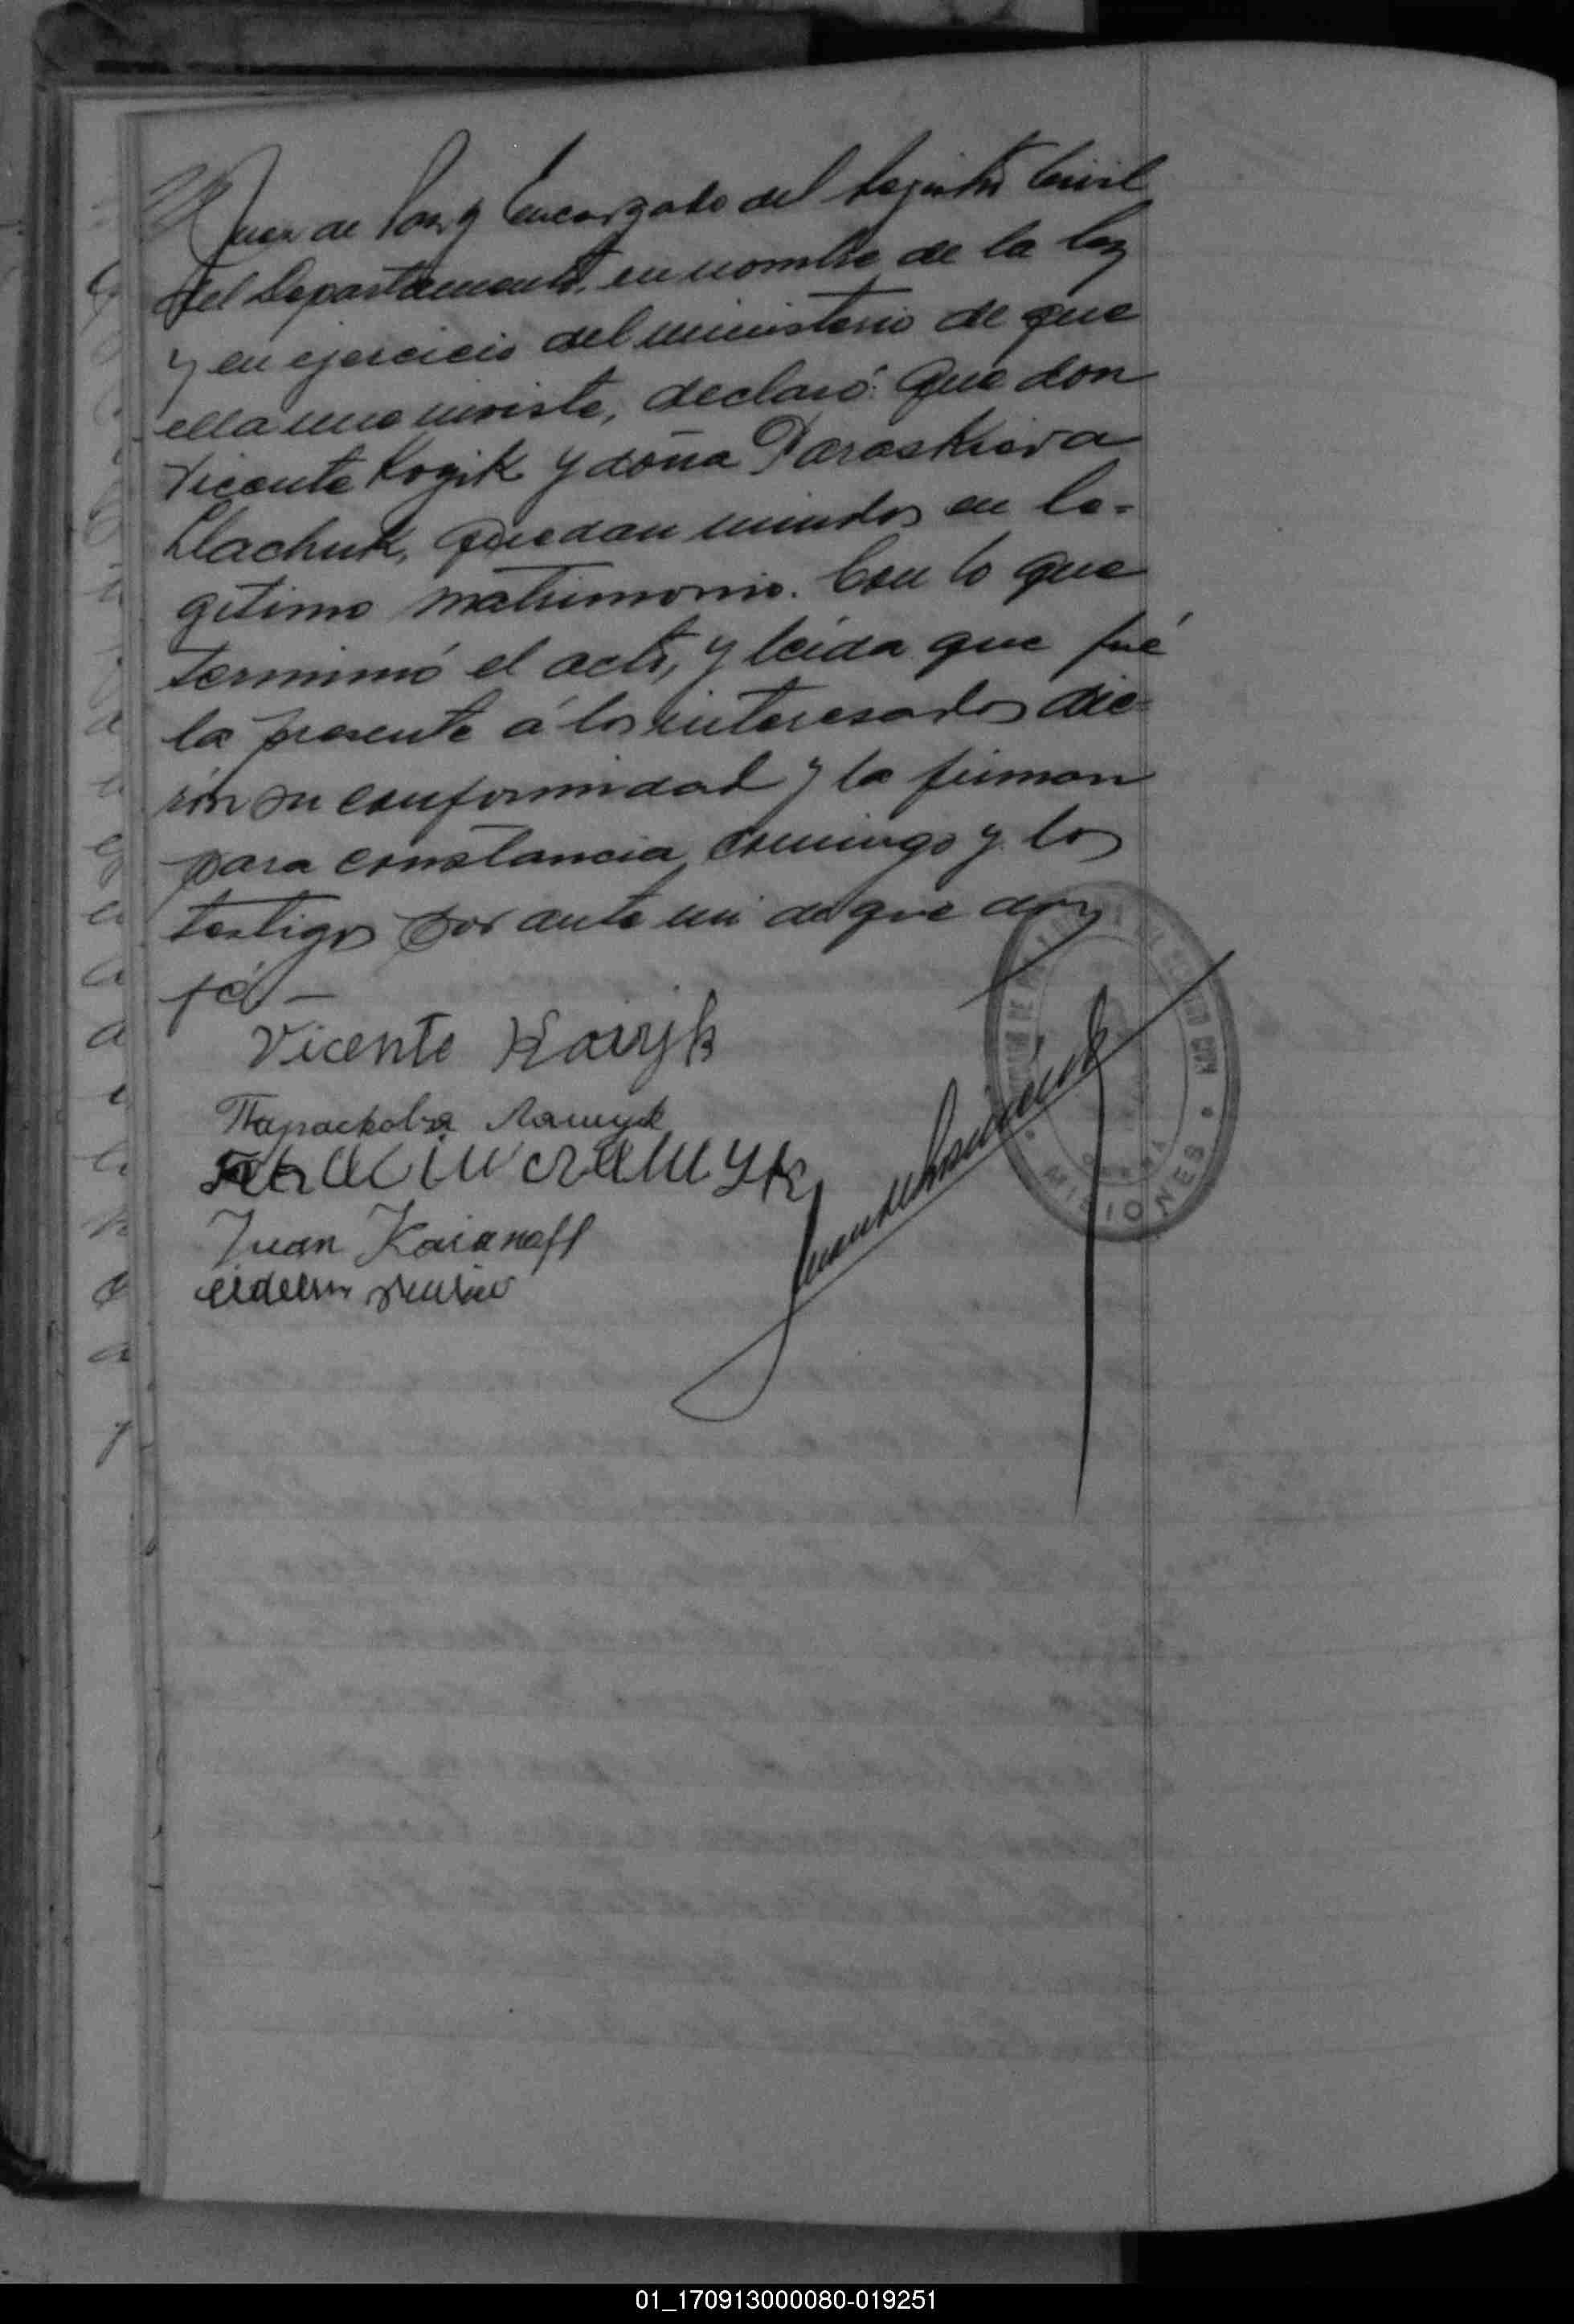 Juez de Paz y Encargado del Registro Civil
del Departamento, en nombre de la ley
y en ejercicio del ministerio de que
ella me inviste, declaró: Que don
Vicente Kozik y doña Paraskieva
Llachuk, quedan unidos en le-
gítimo matrimonio. Con lo que
terminó el acto, y leída que fué
la presente á los interesados die-
rón su conformidad y la firman
para constancia, conmigo y los
testigos por ante mi de que doy
fé —
Vicente
Параскова Лащук
Juan
MISIONES
01_170913000080-019251